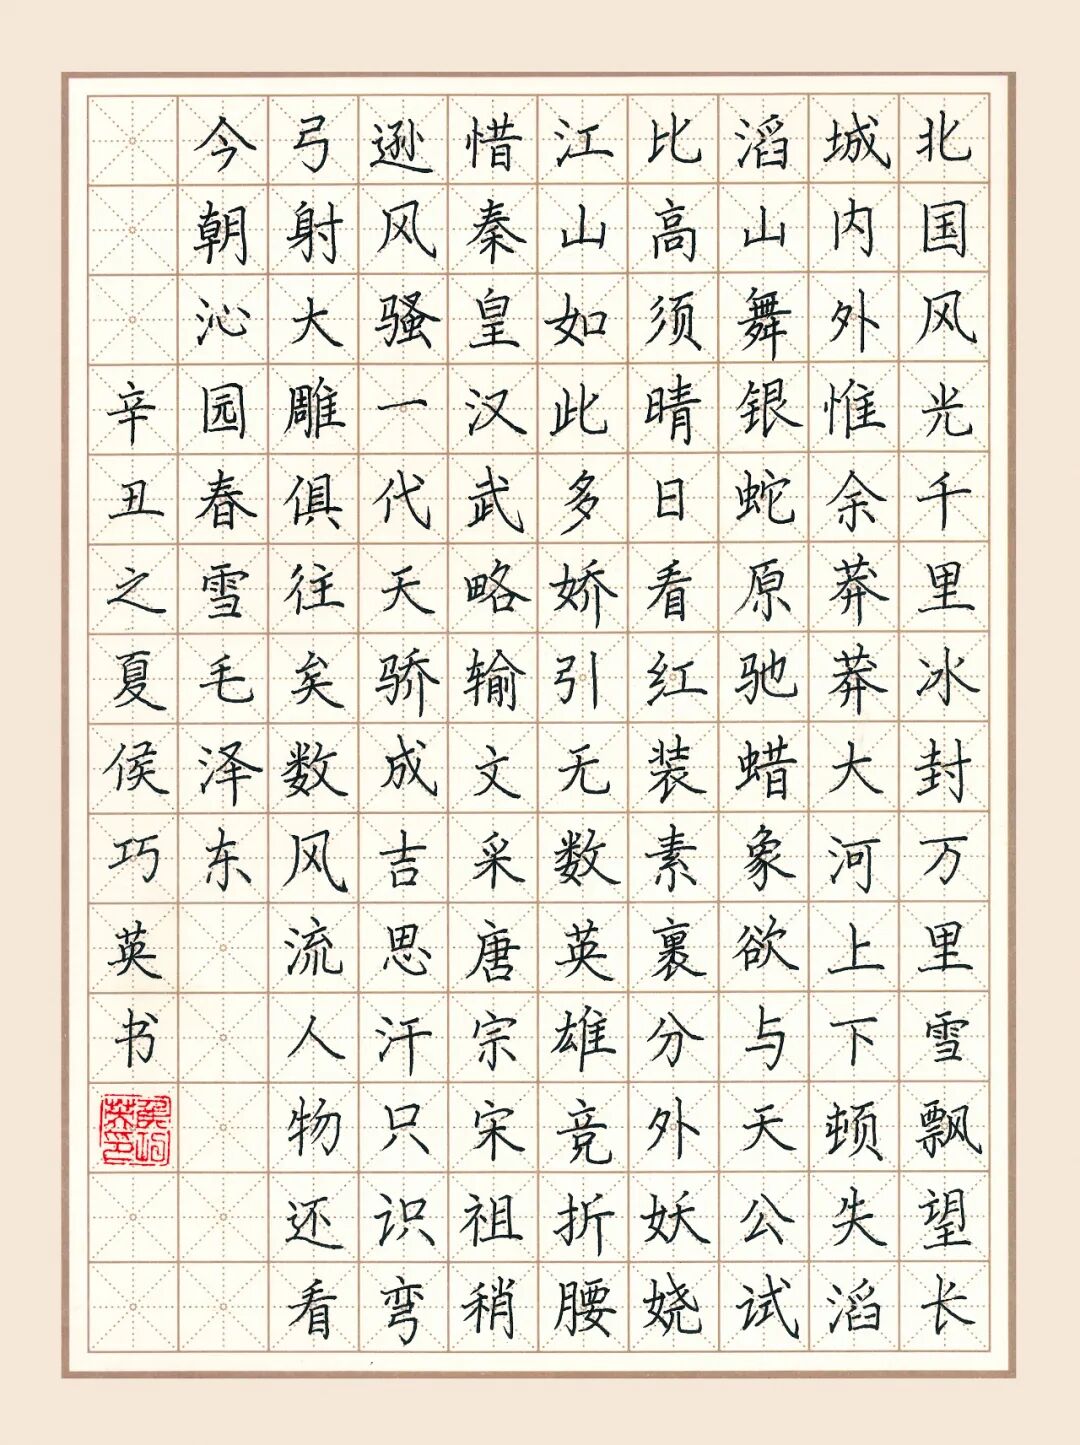 北国风光千里冰封万里雪飘望长
城内外惟余莽莽大河上下顿失滔
滔山舞银蛇原驰蜡象欲与天公试
比高须晴日看红装素裹分外妖娆
江山如此多娇引无数英雄竞折腰
惜秦皇汉武略输文采唐宗宋祖稍
逊风骚一代天骄成吉思汗只识弯
弓射大雕俱往矣数风流人物还看
今朝沁园春雪毛泽东
辛丑之夏侯巧英书
侯巧英印